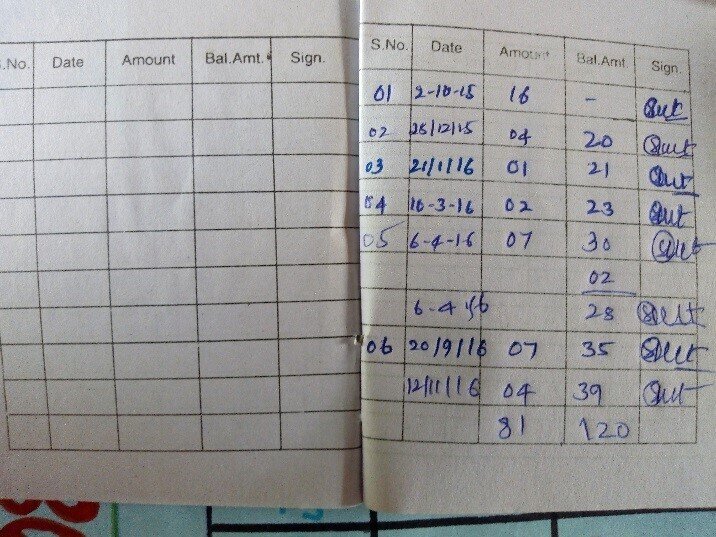 .No. Date Amount Bal.Amt. Sign.
S.No. Date Amount Bal.Amt. Sign.
01 2-10-15 16 -
02 25/12/15 04 20
03 21/1/16 01 21
04 10-3-16 02 23
05 6-4-16 07 30
02
6-4-16 28
06 20/9/16 07 35
12/11/16 04 39
81 120